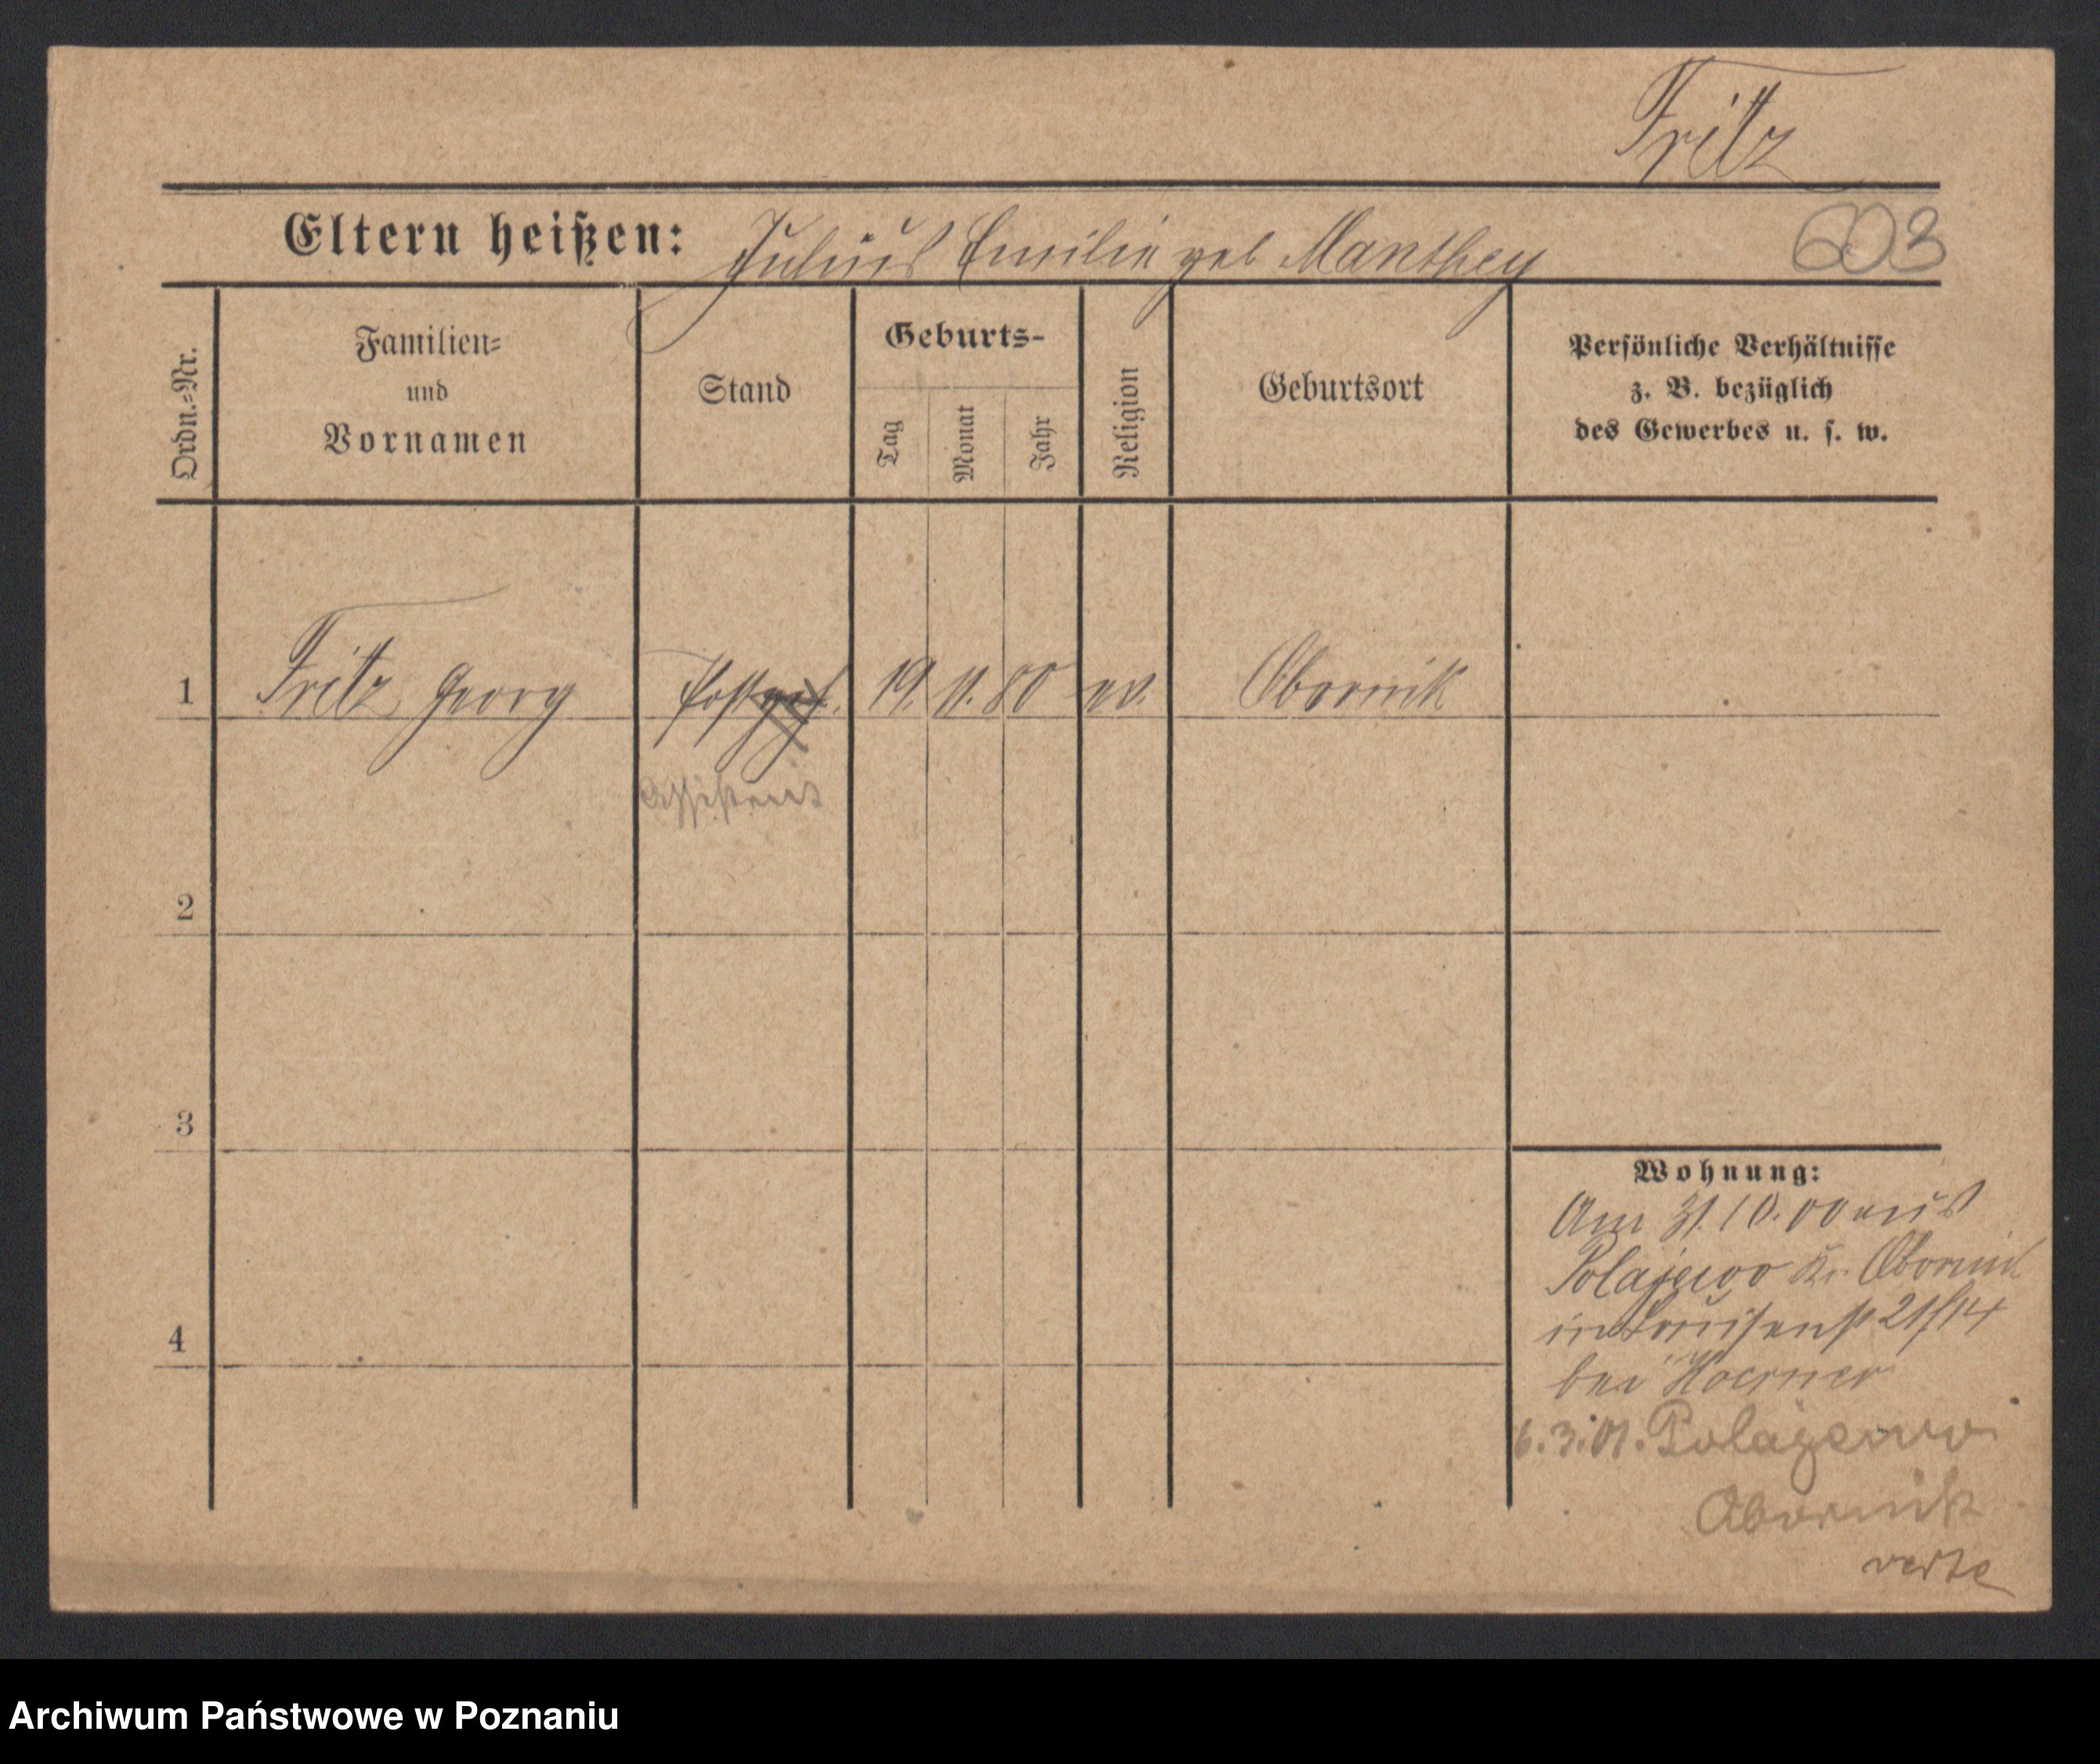 Fritz
Eltern heißen: Julius Emilie geb Manthey
603
Ordn.-Nr.
Familien-
und
Vornamen
Stand
Geburts-
Tag
Monat
Jahr
Religion
Geburtsort
Persönliche Verhältnisse
z. B. bezüglich
des Gewerbes u. s. w.
1 Fritz Georg Postgeh. 19. 11. 80 ev. Obornik
Assistent
2
3
4
Wohnung:
Am 31.10.00 aus
Polajewo Kr. Obornik
in Louisenst 21/14
bei Hoerner
6.3.01. Polajewo
Obornik
verte
Archiwum Państwowe w Poznaniu